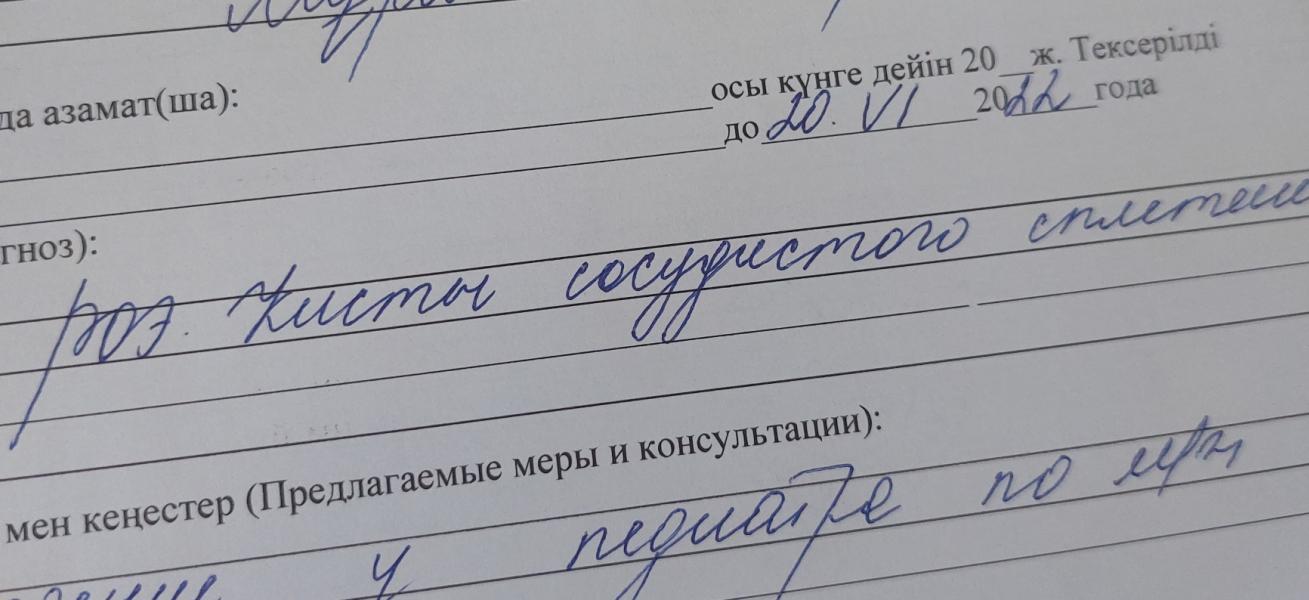 да азамат(ша):
осы күнге дейін 20__ж. Тексерілді
до 20. VI 2022 года
гноз):
кисты сосудистого сплетени
мен кеңестер (Предлагаемые меры и консультации):
у педиатра по м/ж